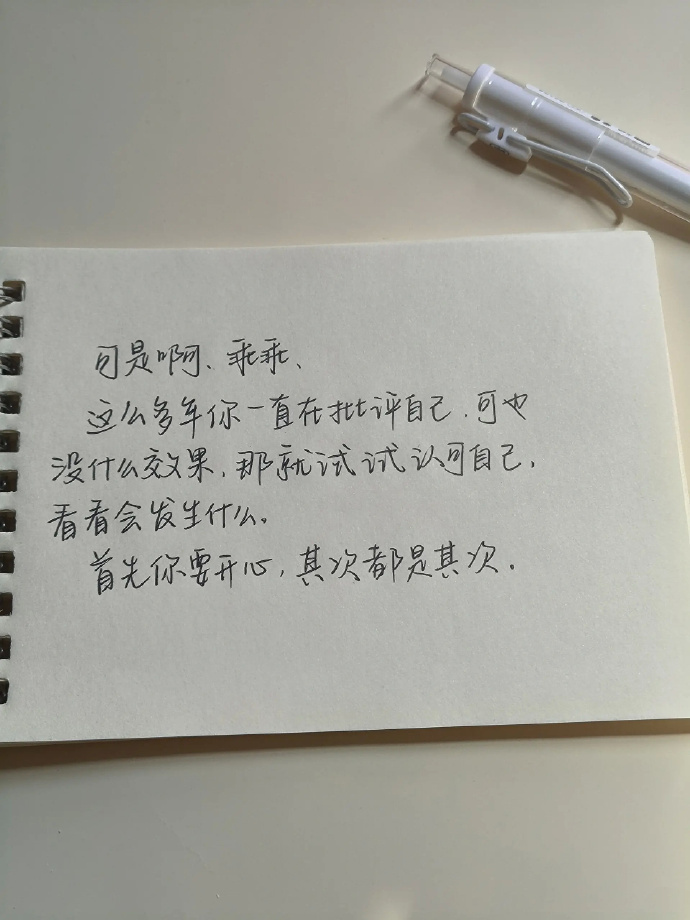 可是啊、乖乖、
这么多年你一直在批评自己.可也
没什么交效果.那就试试认可自己,
看看会发生什么。
首先你要开心,其次都是其次.